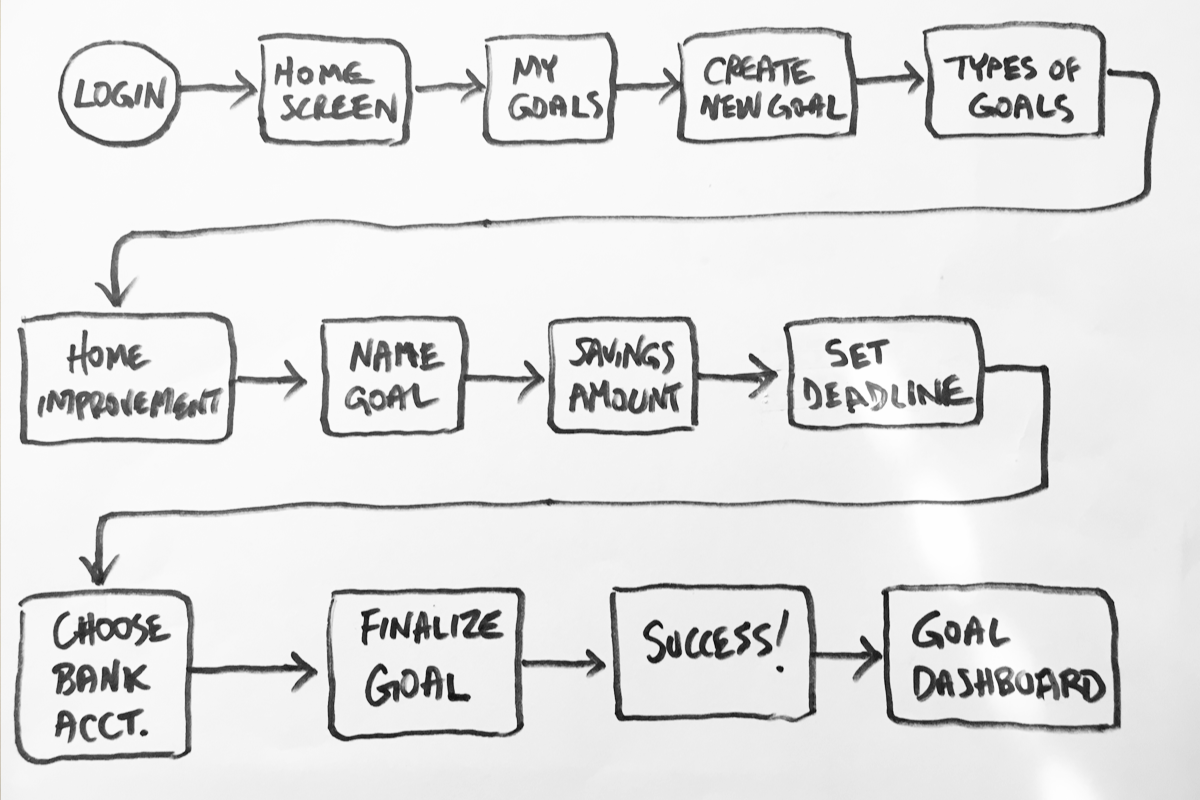 LOGIN
HOME
SCREEN
MY
GOALS
CREATE
NEW GOAL
TYPES OF
GOALS
HOME
IMPROVEMENT
NAME
GOAL
SAVINGS
AMOUNT
SET
DEADLINE
CHOOSE
BANK
ACCT.
FINALIZE
GOAL
SUCCESS!
GOAL
DASHBOARD